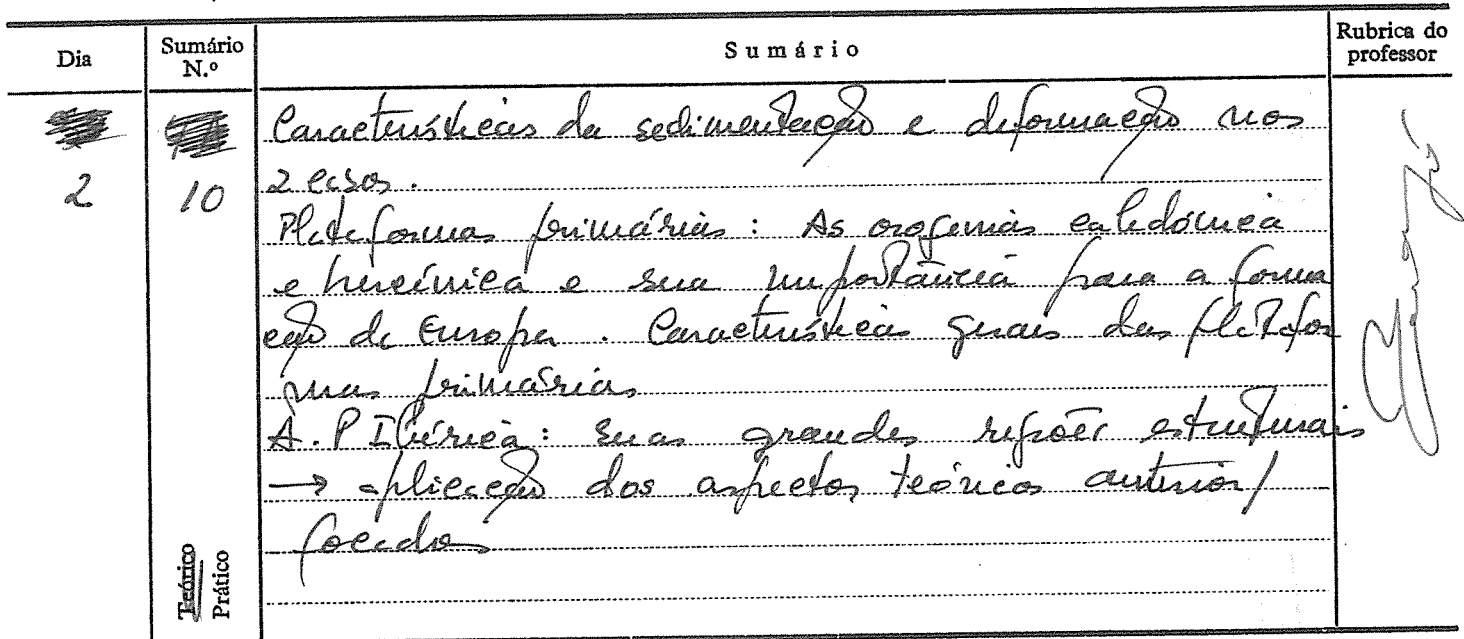 Dia Sumário N.º Sumário Rubrica do professor
Características da sedimentação e deformação nos
2 10 2 casos.
Plataformas primárias : As orogenias caledónica
e hercínica e sua importância para a forma
ção da Europa . Características gerais das platafor
mas primárias
A. P Ibérica : suas grandes regiões estruturais
→ aplicação dos aspectos teóricos anterior/
focados
Teórico
Prático